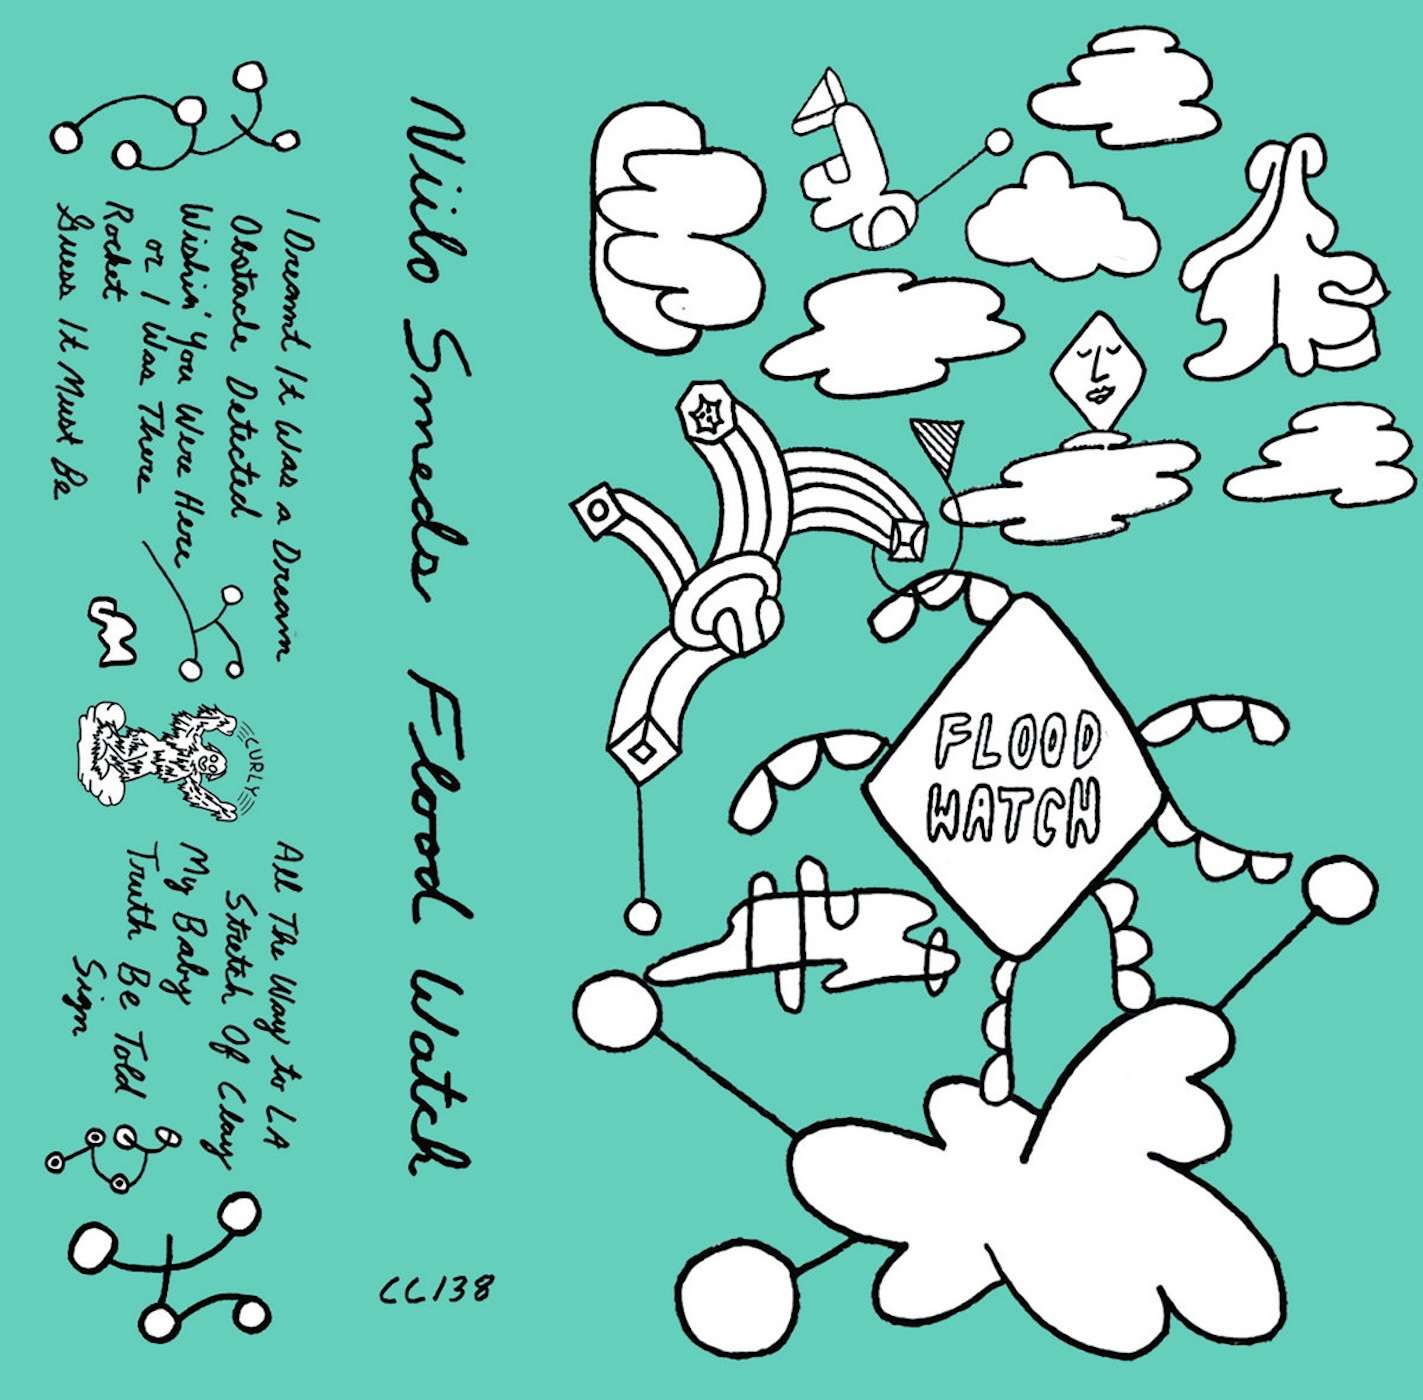 I Dreamt It Was a Dream
Obstacle Detected
Wishin' You Were Here
or I Was There
Rocket
Guess It Must Be
CURLY
All The Way to LA
Stretch Of Clay
My Baby
Truth Be Told
Sign
Niilo Smeds Flood Watch
CC138
FLOOD
WATCH